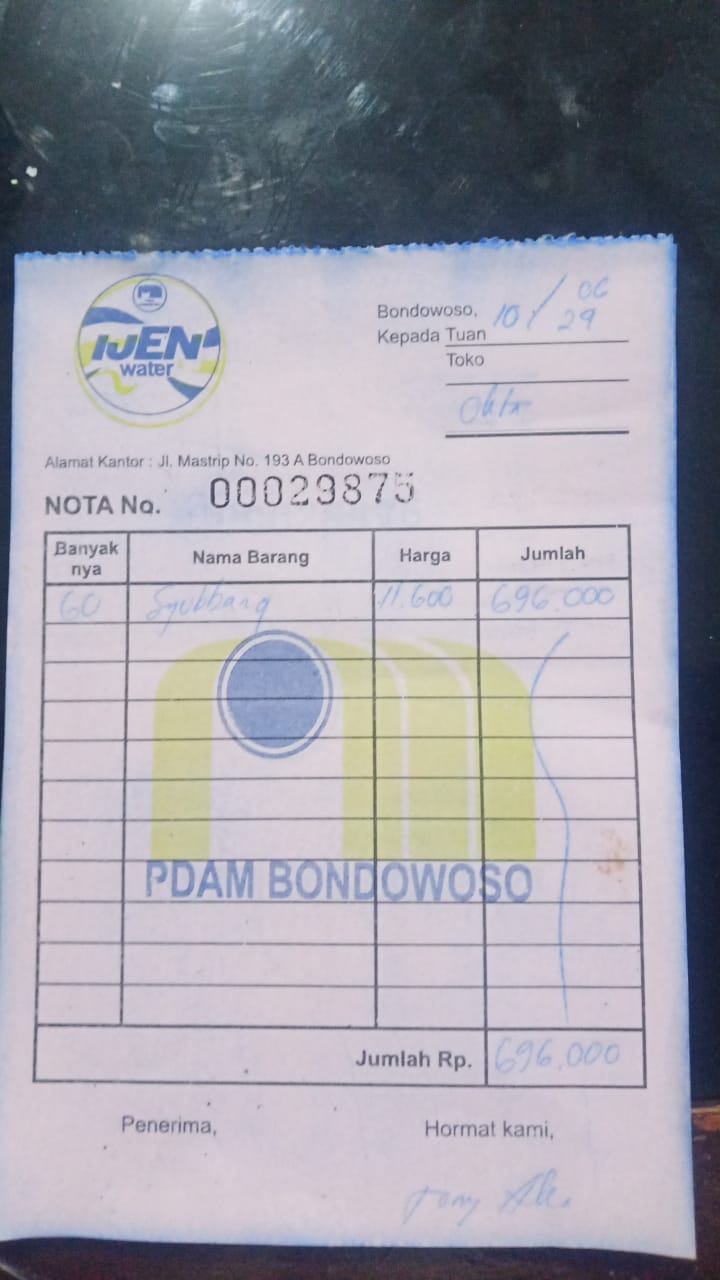 IJEN
water
Bondowoso, 10/06
29
Kepada Tuan
Toko
Alamat Kantor : Jl. Mastrip No. 193 A Bondowoso
NOTA No. 00029875
Banyak nya Nama Barang Harga Jumlah
60 11.600 696.000
PDAM BONDOWOSO
Jumlah Rp. 696.000
Penerima, Hormat kami,